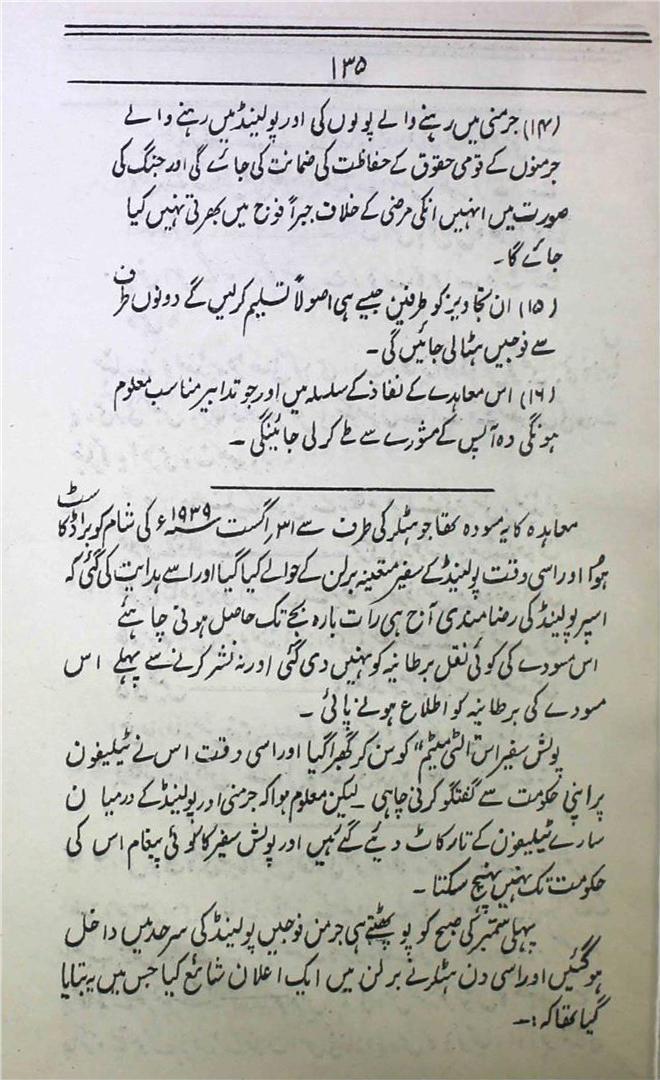 ۱۳۵
(۱۴) جرمنی میں رہنے والے پولوں کی اور پولینڈ میں رہنے والے
جرمنوں کے قومی حقوق کے حفاظت کی ضمانت کی جائے گی اور جنگ کی
صورت میں انہیں انکی مرضی کے خلاف جبراً فوج میں بھرتی نہیں کیا
جائے گا۔
(۱۵) ان تجاویز کو طرفین جیسے ہی اصولاً تسلیم کرلیں گے دونوں طرف
سے فوجیں ہٹالی جائیں گی۔
(۱۶) اس معاہدے کے نفاذ کے سلسلہ میں اور جو تدابیر مناسب معلوم
ہونگی وہ آپس کے مشورے سے طے کرلی جائینگی۔
معاہدہ کا یہ مسودہ تھا جو ہٹلر کی طرف سے ۳۱ر اگست ۱۹۳۹ء کی شام کو براڈ کاسٹ
ہوا اور اسی وقت پولینڈ کے سفیر متعینہ برلن کے حوالے کیا گیا اور اسے ہدایت کی گئی کہ
اسپر پولینڈ کی رضامندی آج ہی رات بارہ بجے تک حاصل ہونی چاہئے
اس مسودے کی کوئی نقل برطانیہ کو نہیں دی گئی اور نہ نشر کرنے سے پہلے اس
مسودے کی برطانیہ کو اطلاع ہونے پائی۔
پولش سفیر اس "الٹی میٹم" کو سن کر گھبرا گیا اور اسی وقت اس نے ٹیلیفون
پر اپنی حکومت سے گفتگو کرنی چاہی۔ لیکن معلوم ہوا کہ جرمنی اور پولینڈ کے درمیان
سارے ٹیلیفون کے تار کاٹ دیئے گئے ہیں اور پولش سفیر کا کوئی پیغام اس کی
حکومت تک نہیں پہنچ سکتا۔
پہلی ستمبر کی صبح کو پو پھٹتے ہی جرمن فوجیں پولینڈ کی سرحد میں داخل
ہوگئیں اور اسی دن ہٹلر نے برلن میں ایک اعلان شائع کیا جس میں یہ بتایا
گیا تھا کہ:۔